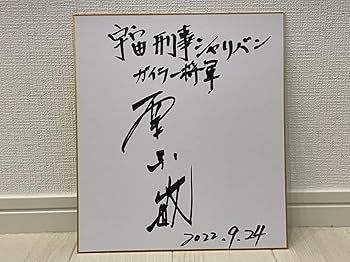 宇宙刑事シャリバン
ガイラー将軍
2022.9.24